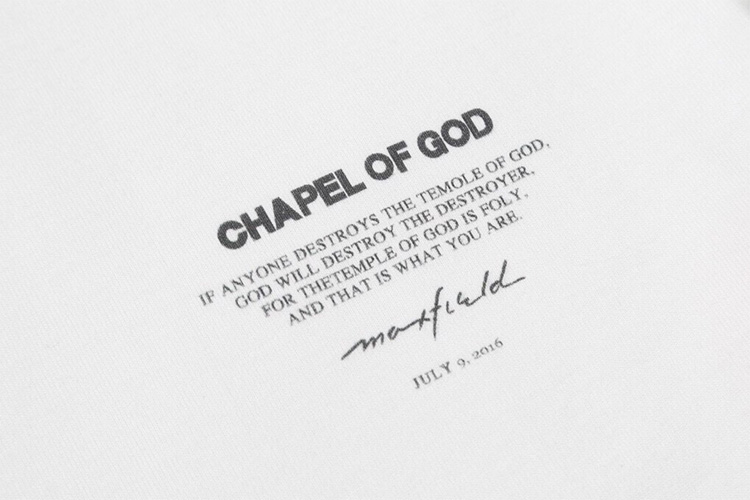 CHAPEL OF GOD
IF ANYONE DESTROYS THE TEMOLE OF GOD,
GOD WILL DESTROY THE DESTROYER,
FOR THETEMPLE OF GOD IS FOLY,
AND THAT IS WHAT YOU ARE.
maxfield
JULY 9, 2016